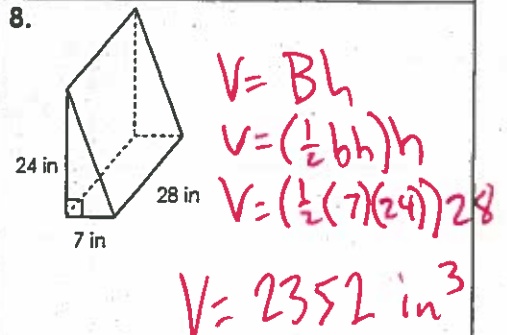 8.
24 in
28 in
7 in
V= Bh
V=(½bh)h
V=(½(7)(24))28
V= 2352 in³